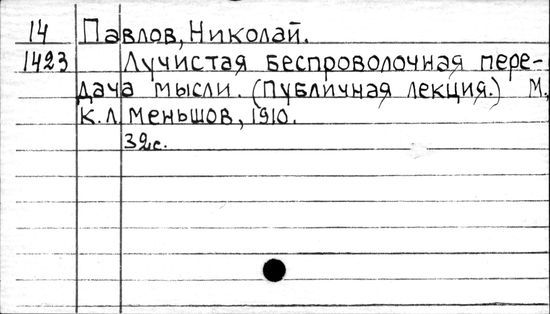 14 Павлов, Николай.
1423 Лучистая беспроволочная пере-
дача мысли. (Публичная лекция.) М.,
К. Л. Меньшов, 1910.
32с.